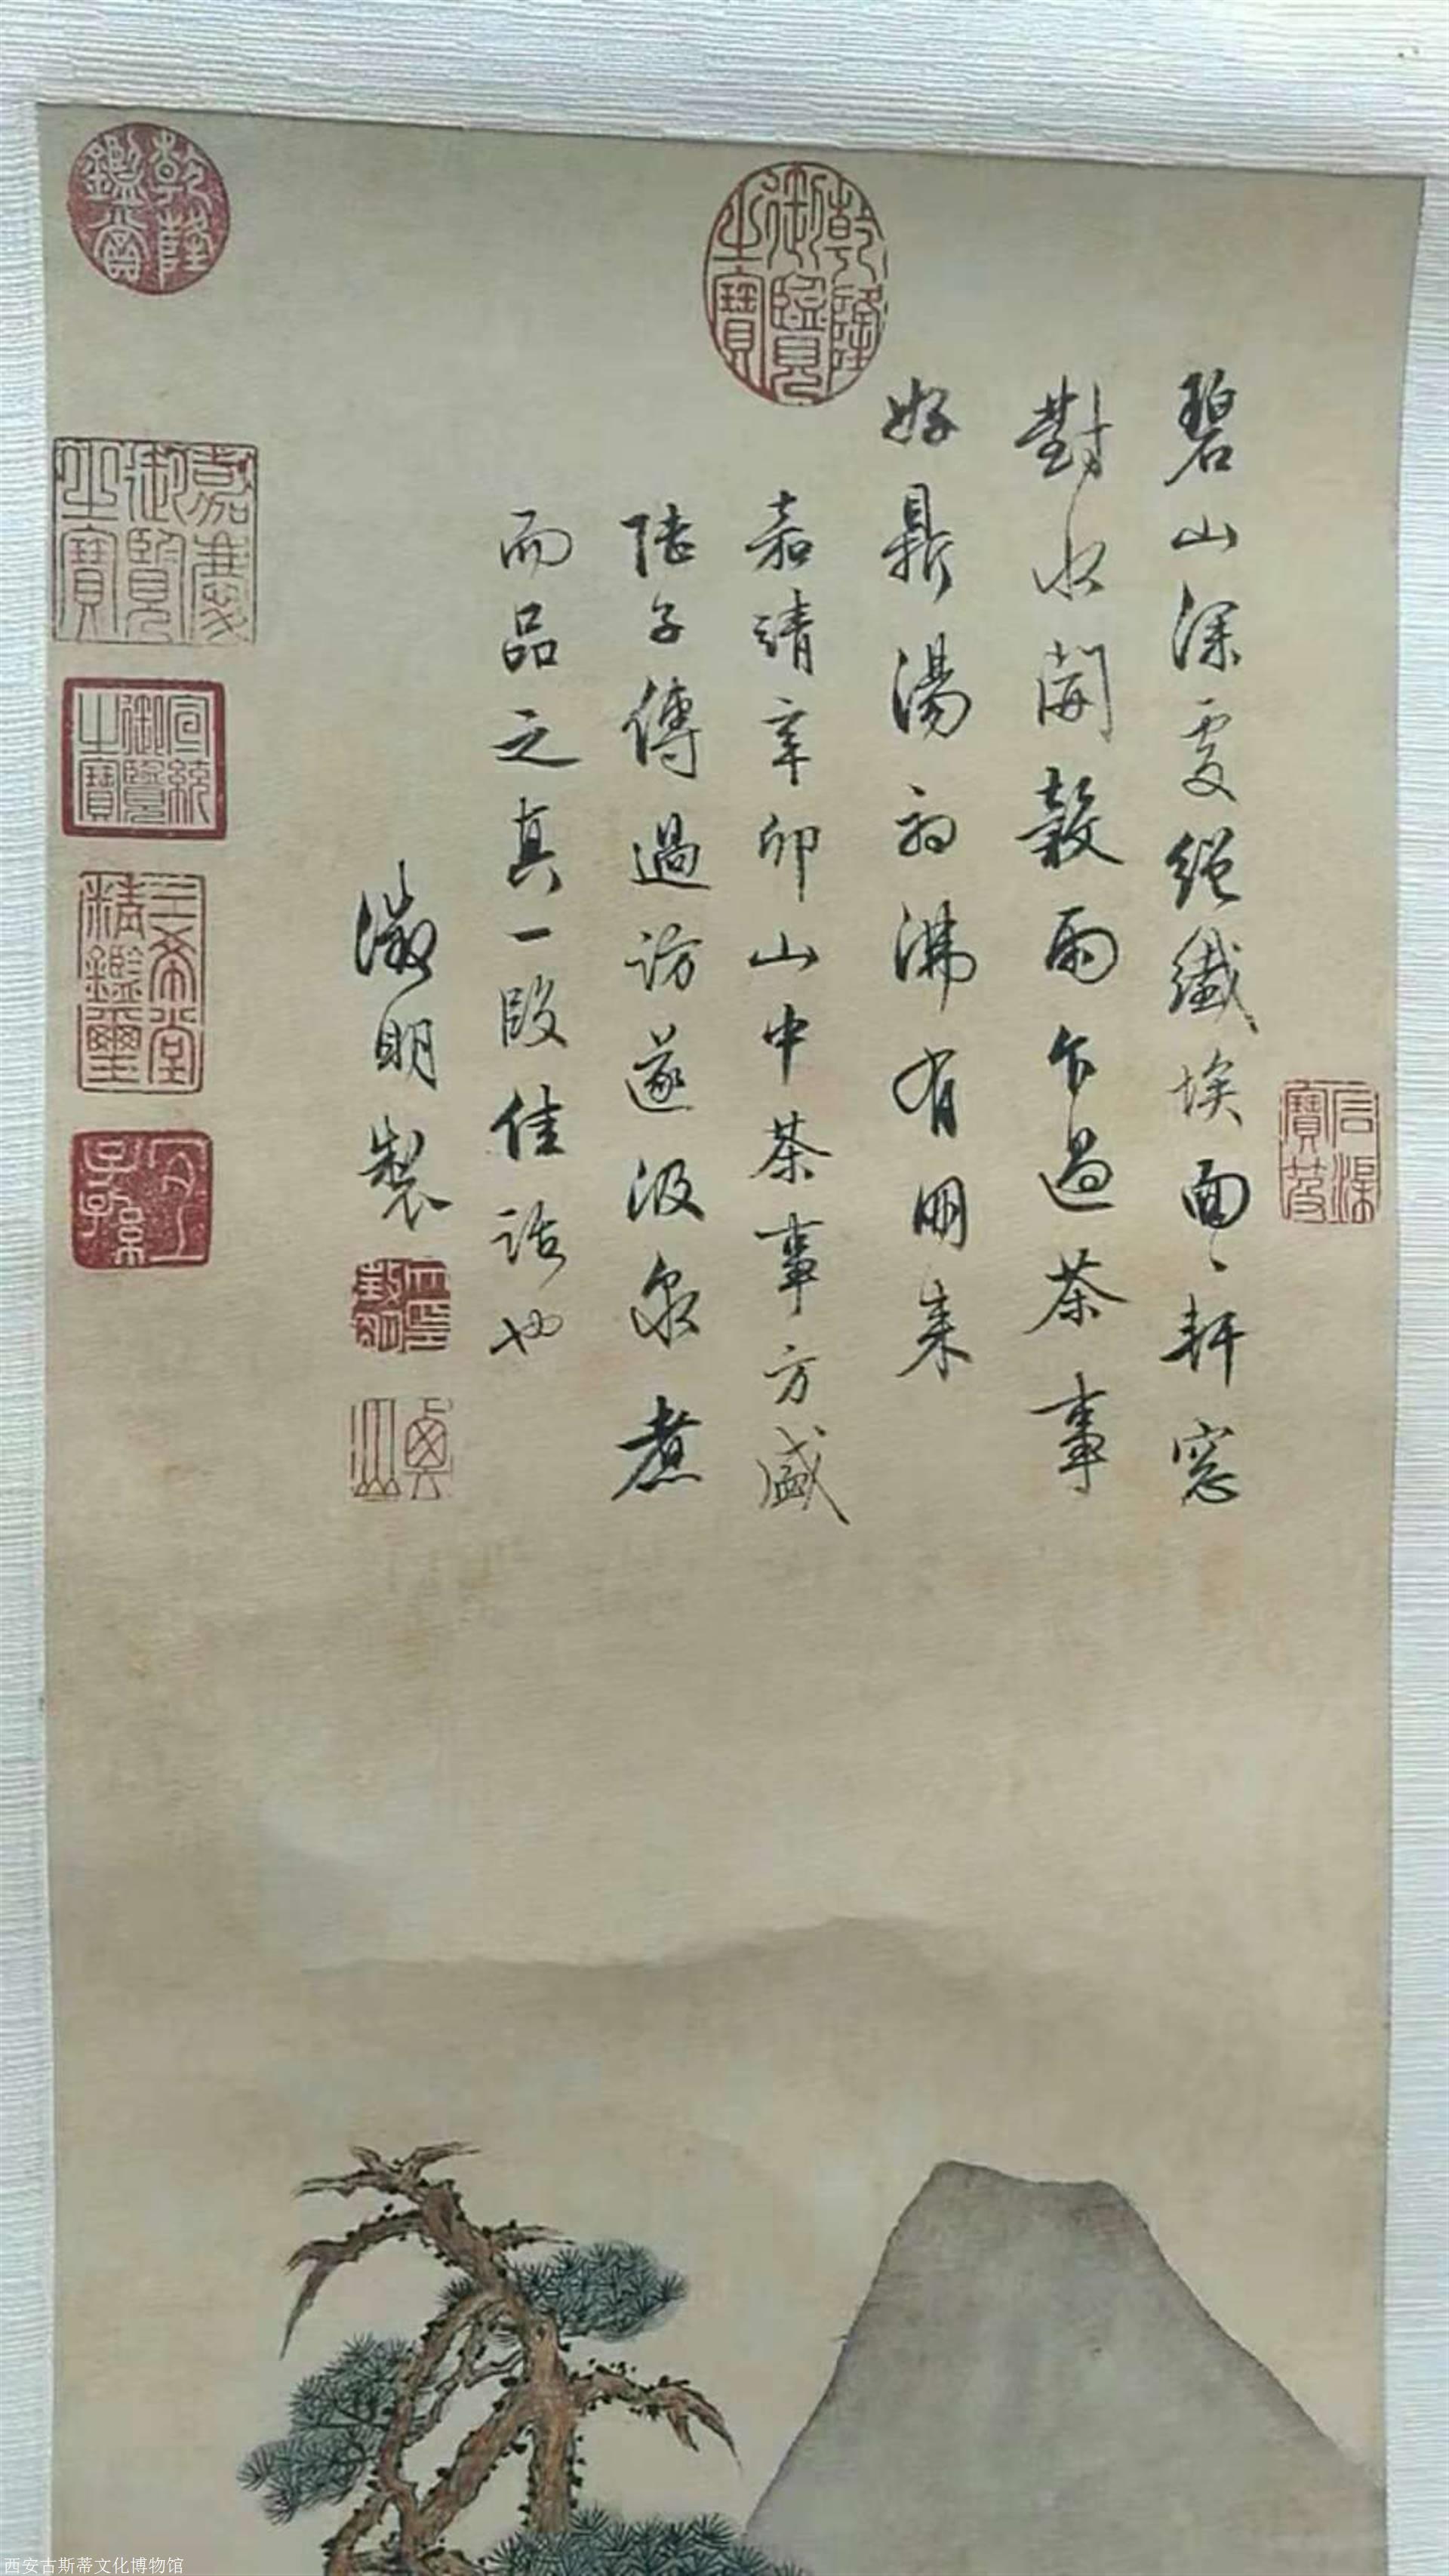 石渠寶笈
碧山深處絕纖埃面〻軒窓
對水開穀雨乍過茶事
好鼎湯初沸有朋来
乾隆御覽之寶
嘉靖辛卯山中茶事方盛
陸子傳過訪遂汲泉煮
而品之真一段佳話也
徵明製
乾隆鑑賞
嘉慶御覽之寶
宣統御覽之寶
三希堂精鑑璽
宜子孫
西安古斯蒂文化博物馆